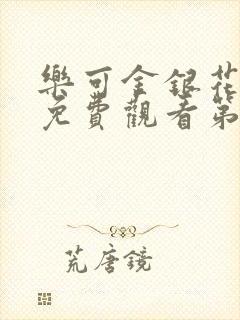 樂可金銀花
免費觀看第
荒唐鏡